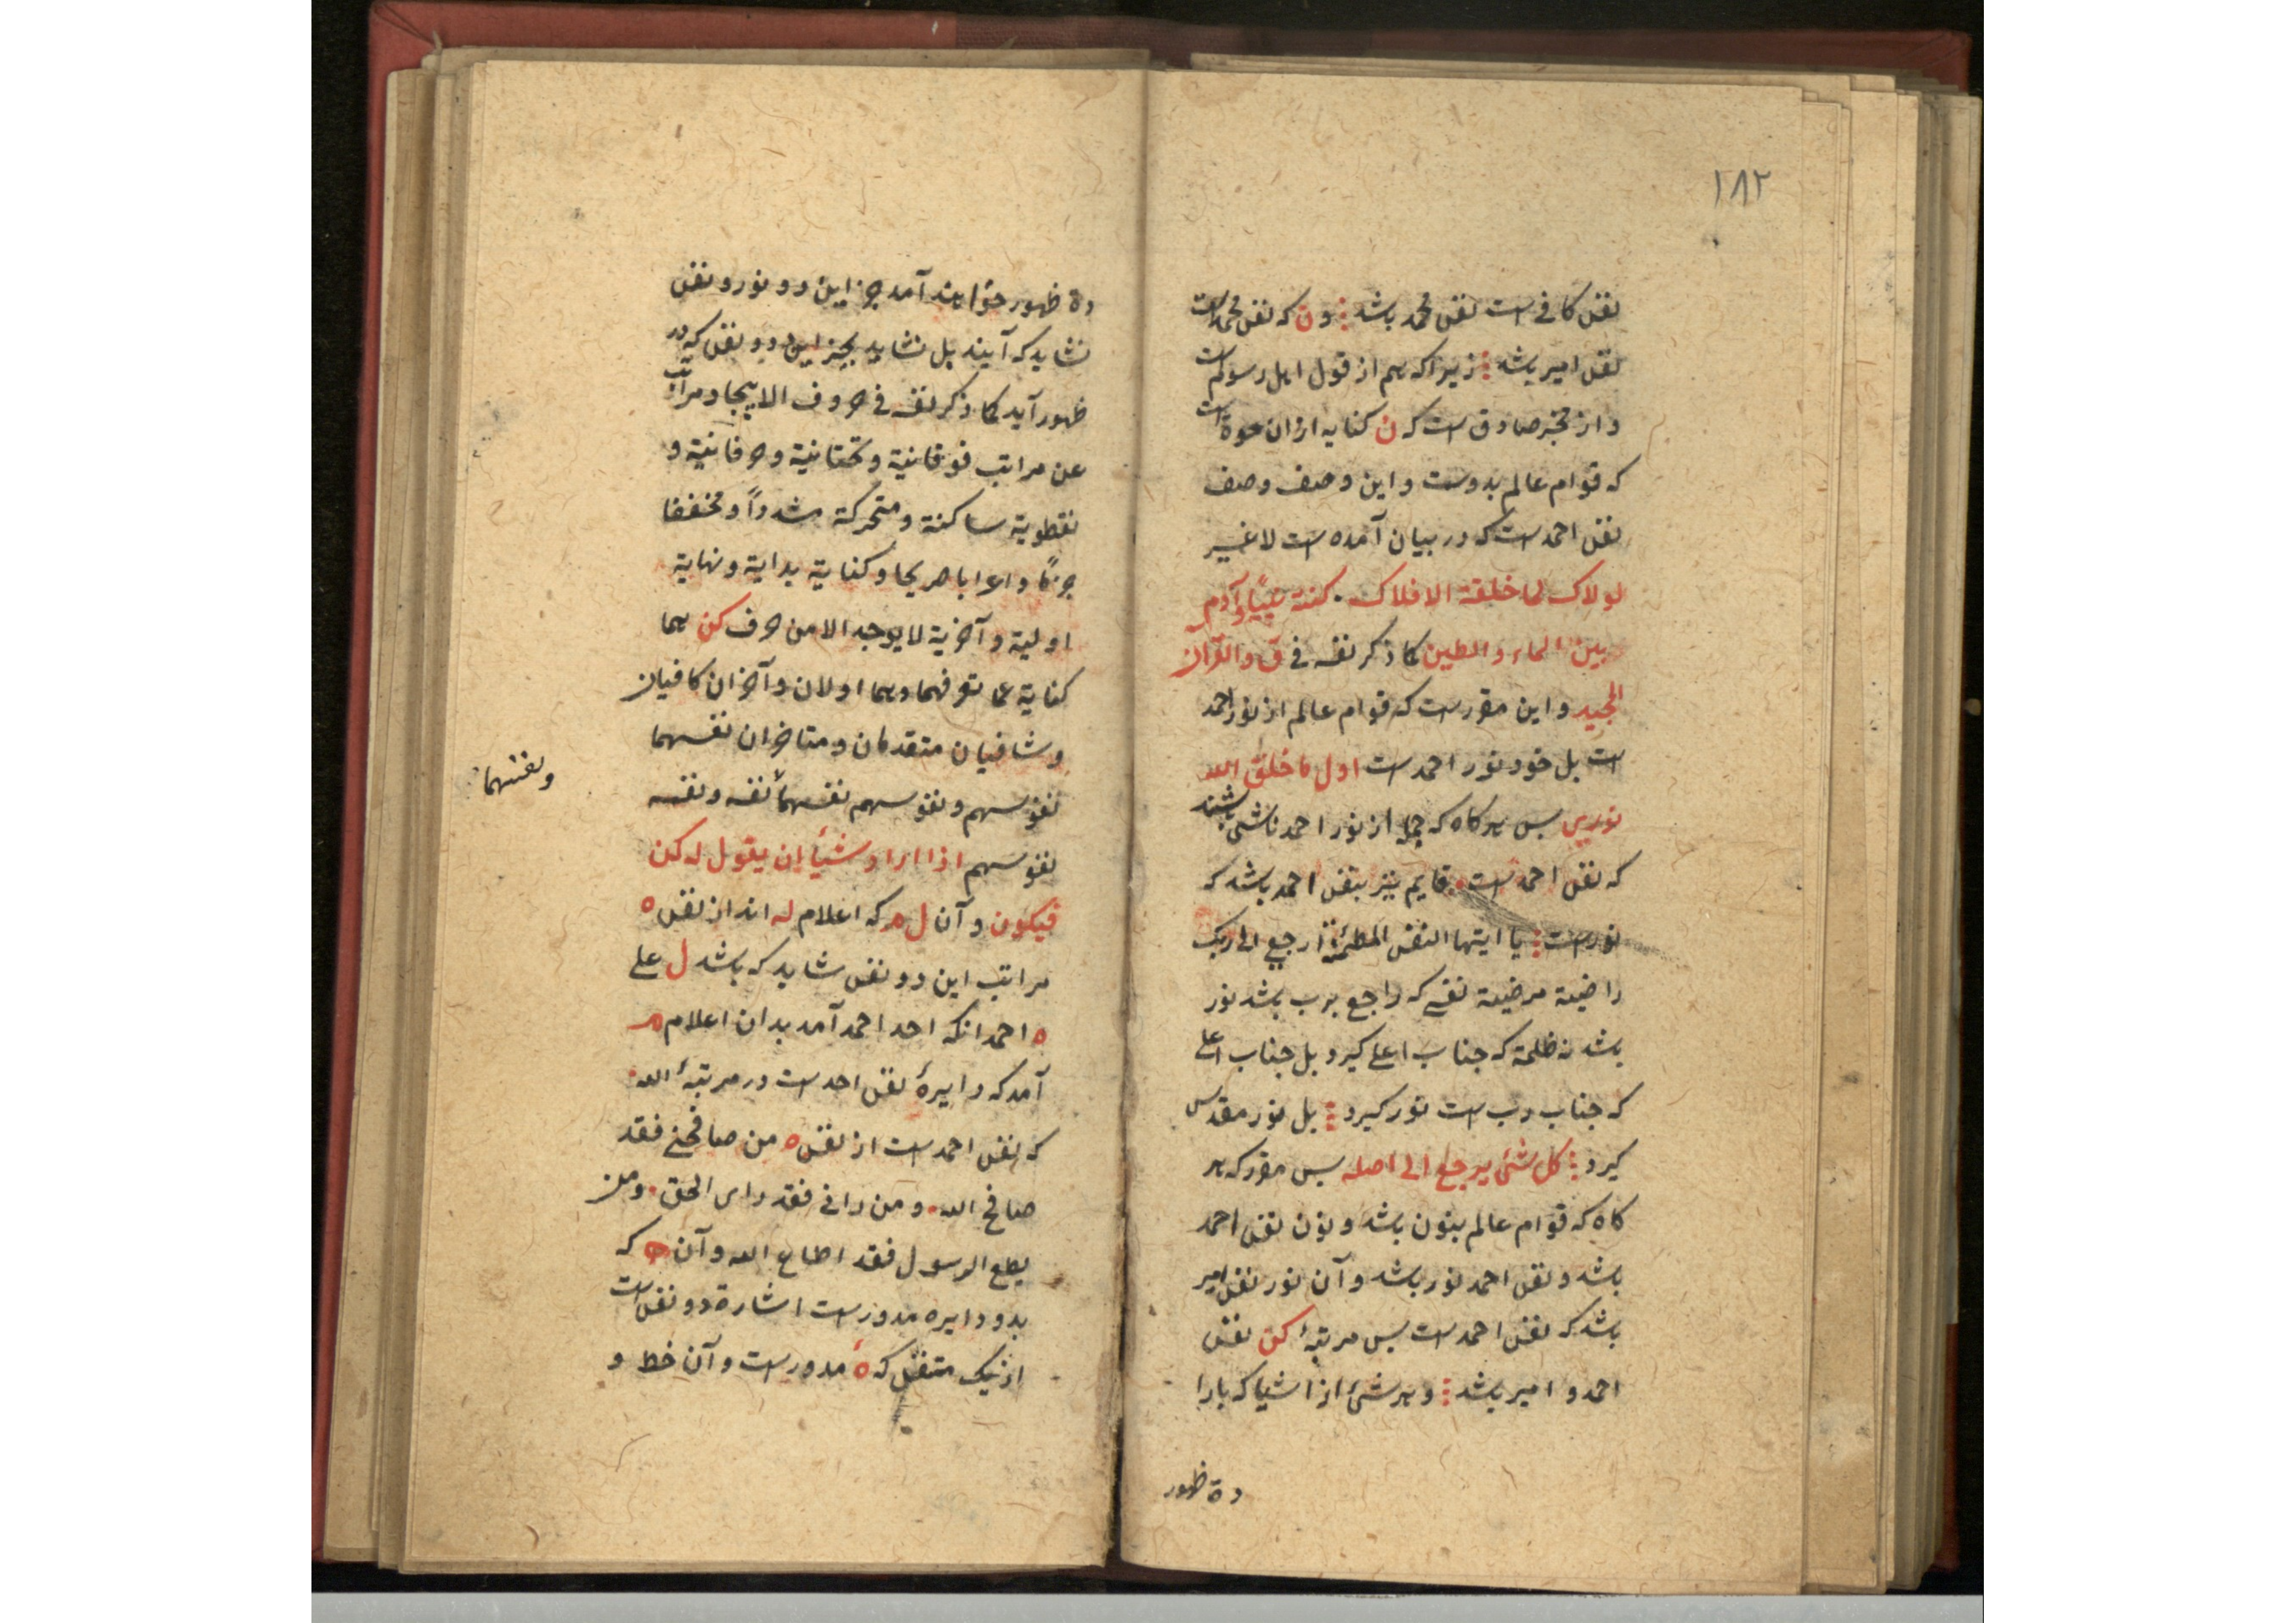 ۱۸۲
نفس کافی است نفس محمد باشد ؞ و ن که نفس محمد است
نفس امیر باشد ؞ زیرا که هم از قول اهل رسوم است
و از مخبر صادق است که ن کنایه ازان حوة است
که قوام عالم بدوست و این وصف وصف
نفس احمد است که در بیان آمده است لا غیر
لولاک لما خلقة الافلاک . کنت نبیا و آدم
بین الماء و الطین کما ذکر نفسه فی ق و القرآن
المجید و این مقرر است که قوام عالم از نور احمد
است بل خود نور احمد است اول ما خلق الله
نوری پس هرکاه که جمله از نور احمد ناشی باشند
که نفس احمد است . قایم نیز بنفس احمد باشد که
نور است ؞ یا ایتها النفس المطمئنة ارجعی الی ربک
راضیة مرضیة نفسی که راجع برب باشد نور
باشد نه ظلمة که جناب اعلی کیرد بل جناب اعلی
که جناب رب است نور کیرد ؞ بل نور مقدس
کیرد ؞ کل شئ یرجع الی اصله پس مقرر که هر
کاه که قوام عالم بنون باشد و نون نفس احمد
باشد و نفس احمد نور باشد و آن نور نفس امیر
باشد که نفس احمد است پس مرتبهٔ کن نفس
احمد و امیر باشد ؞ و هر شئ از اشیا که بارا
دة ظهور
دة ظهور خواهند آمد جز این دو نور و نفس
نشاید که آیند بل نشاید بجز این دو نفس که در
ظهور آید کما ذکر نفسه فی حروف الایجاد مراتب
عن مراتب فوقانیة و تحتانیة و حرفانیة و
نقطویة ساکنة و متحرکة مشدداً و مخففا
جزمًا و اعرابا صریحا و کنایة بدایة و نهایة
اولیة و آخریة لا یوجد الا من حرف کن هما
کنایة عما تعرفهما و هما اولان و آخران کافیان
و شافیان متقدمان و متاخران نفسهما
نفوسهم و نفوسهم نفسهما نفسه و نفسه
و نفسهما
نفوسهم اذا اراد شیأ ان یقول له کن
فیکون و آن ل ه که اعلام له اند از نفس ه
مراتب این دو نفس شاید که باشد ل علی
ه احمد انکه احد احمد آمد بدان اعلام م
آمد که دایرهٔ نفس احد است در مرتبهٔ الله
که نفس احمد است از نفس ه من صافحنی فقد
صافح الله . و من رانی فقد رای الحق . و من
یطع الرسول فقد اطاع الله و آن ه که
بدو دایره مدور است اشارة دو نفس است
از یک متنفس که ه مدور است و آن خط و